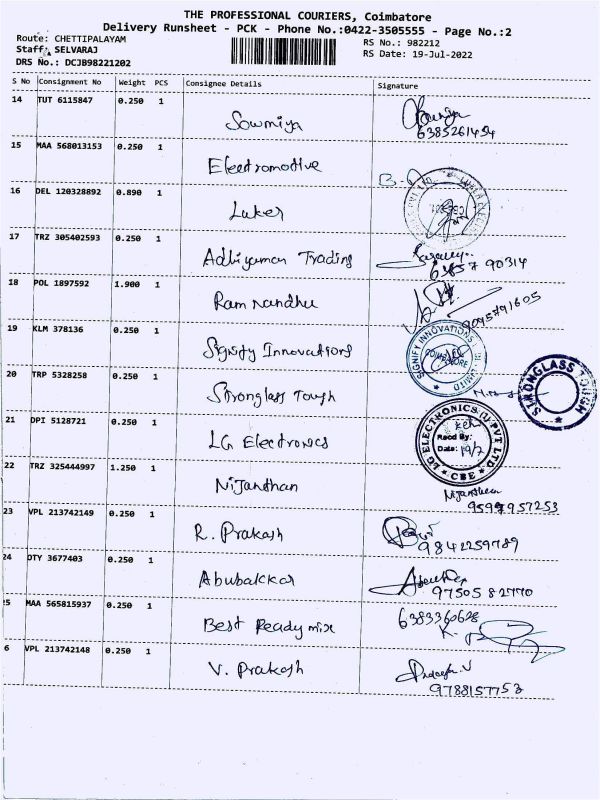 THE PROFESSIONAL COURIERS, Coimbatore
Delivery Runsheet - PCK - Phone No.:0422-3505555 - Page No.:2
Route: CHETTIPALAYAM
RS No.: 982212
Staff: SELVARAJ
RS Date: 19-Jul-2022
DRS No.: DCJB98221202
S No Consignment No Weight PCS Consignee Details Signature
14 TUT 6115847 0.250 1
Sowmiya
6385261454
15 MAA 568013153 0.250 1
Electromotive
16 DEL 120328892 0.890 1
Luker
17 TRZ 305402593 0.250 1
Adhiyaman Trading
90314
18 POL 1897592 1.900 1
Ram Nandhu
9095791605
19 KLM 378136 0.250 1
Signify Innovations
SIGNIFY INNOVATIONS
COIMBATORE
20 TRP 5328258 0.250 1
Stronglass Tough
STRONGLASS TOUGH
21 DPI 5128721 0.250 1
LG Electronics
LG ELECTRONICS (I) PVT LTD
Recd By:
Date: 19/7
CBE
22 TRZ 325444997 1.250 1
Nijandhan
Nijandhan
9597957253
23 VPL 213742149 0.250 1
R. Prakash
9842259789
24 OTY 3677403 0.250 1
Abubakkar
97505 82770
25 MAA 565815937 0.250 1
Best Ready mix
6383360628
6 VPL 213742148 0.250 1
V. Prakash
9788157753